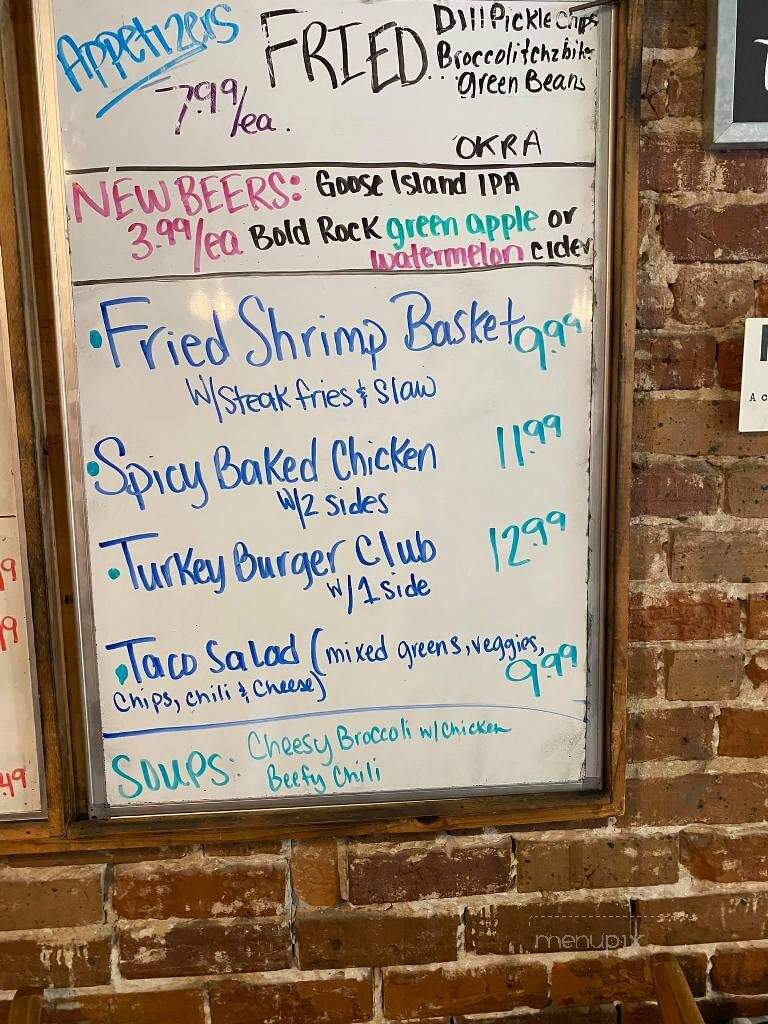 Appetizers FRIED Dill Pickle Chips
Broccoli & chz bites
Green Beans
7.99/ea.
OKRA
NEW BEERS: Goose Island IPA
3.99/ea Bold Rock green apple or
watermelon cider
• Fried Shrimp Basket 9.99
W/Steak fries & slaw
• Spicy Baked Chicken 11.99
W/2 sides
• Turkey Burger Club 12.99
w/1 side
• Taco Salad (mixed greens, veggies,
chips, chili & cheese) 9.99
SOUPS: Cheesy Broccoli w/chicken
Beefy Chili
9
19
49
A c
menupix